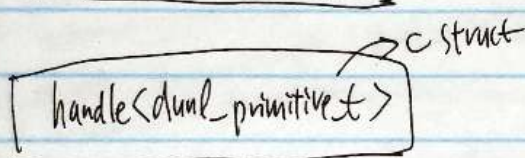 c struct
handle<dnnl_primitive_t>